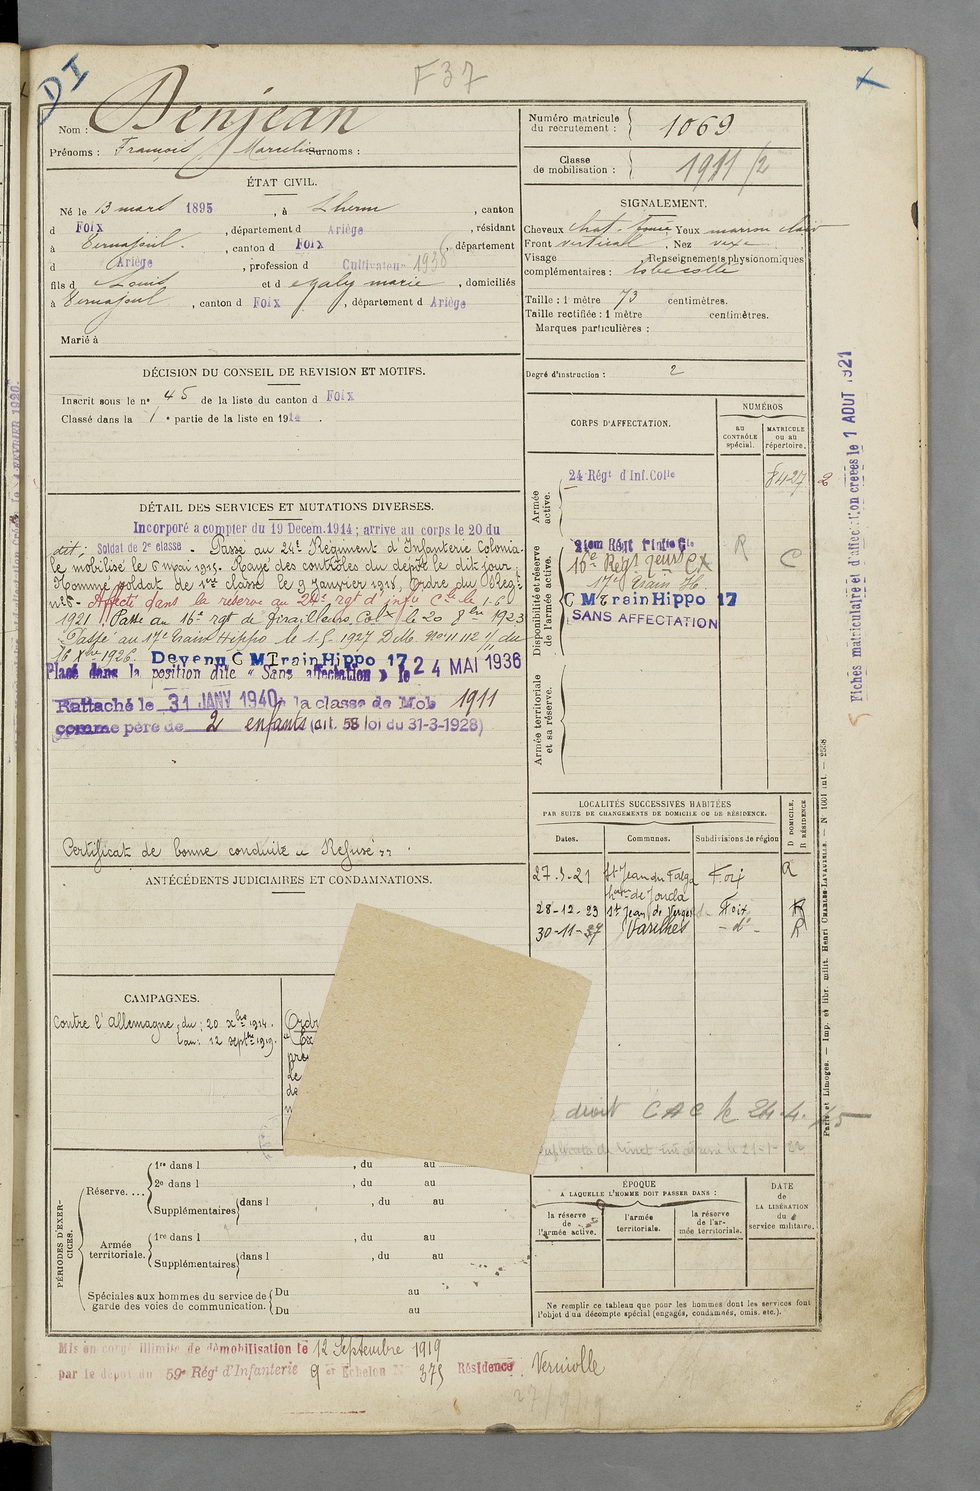 DI
F 37
Nom : Denjean
Prénoms : François Marcelin Surnoms :
Numéro matricule du recrutement : 1069
Classe de mobilisation : 1911 /2
ÉTAT CIVIL.
Né le 13 mars 1895, à Lherm, canton
d Foix, département d Ariège, résidant
à Vernajoul, canton d Foix, département
d Ariège, profession d Cultivateur 1938
fils d Louis et d egaly marie, domiciliés
à Vernajoul, canton d Foix, département d Ariège
Marié à
SIGNALEMENT.
Cheveux chat. foncé Yeux marron clair
Front vertical. Nez vexe
Visage Renseignements physionomiques
complémentaires : lobe collé
Taille : 1 mètre 73 centimètres.
Taille rectifiée : 1 mètre centimètres.
Marques particulières :
Degré d'instruction : 2
DÉCISION DU CONSEIL DE REVISION ET MOTIFS.
Inscrit sous le n° 45 de la liste du canton d Foix
Classé dans la 1e partie de la liste en 1914.
DÉTAIL DES SERVICES ET MUTATIONS DIVERSES.
Incorporé a compter du 19 Decem. 1914 ; arrive au corps le 20 du
dit ; Soldat de 2e classe. Passé au 24e Régiment d'Infanterie Colonia-
le mobilisé le 6 mai 1915. Rayé des contrôles du depôt le dit jour.
Nommé soldat de 1re classe le 9 Janvier 1918, Ordre du Regt
Affecté dans la réserve au 24e rgt d'infie Cle le 1-6
1921. Passé au 16e rgt de Tirailleurs Colx le 20 8bre 1923
Passé au 17e Train Hippo le 1.5.1927 Déb. No 11.112 /11 du
16 Xbre 1926. Devenu C M Train Hippo 17
Placé dans la position dite « Sans affectation » le 24 MAI 1936
Rattaché le 31 JANV 1940 à la classe de Mob 1911
comme père de 2 enfants (art. 58 loi du 31-3-1928)
Certificat de bonne conduite « Refusé ».
CORPS D'AFFECTATION.
NUMÉROS
AU CONTRÔLE spécial.
MATRICULE ou au répertoire.
Armée active.
24 Régt d'Inf. Colle
8427
2
Disponibilité et réserve de l'armée active.
16e Regt
17e Train H.
R
C
C M Train Hippo 17
SANS AFFECTATION
Armée territoriale et sa réserve.
Fiches matriculaire et d'affectation créées le 1 AOUT 1921
LOCALITÉS SUCCESSIVES HABITÉES
PAR SUITE DE CHANGEMENTS DE DOMICILE OU DE RÉSIDENCE.
D DOMICILE. R RÉSIDENCE
Dates. Communes. Subdivisions de région
27-5-21 St Jean du Falga Foix R
28-12-23 St Jean de Verges Foix R
30-11-27 Varilhes - do - R
ANTÉCÉDENTS JUDICIAIRES ET CONDAMNATIONS.
CAMPAGNES.
Contre l'Allemagne, du : 20 Xbre 1914.
au : 12 septbre 1919.
droit CAC le 24.4.
ÉPOQUE
A LAQUELLE L'HOMME DOIT PASSER DANS :
la réserve de l'armée active.
l'armée territoriale.
la réserve de l'armée territoriale.
DATE de LA LIBÉRATION du service militaire.
Ne remplir ce tableau que pour les hommes dont les services font
l'objet d'un décompte spécial (engagés, condamnés, omis, etc.).
PÉRIODES D'EXERCICES.
Réserve....
1re dans l , du au
2e dans l , du au
Supplémentaires dans l , du au
Armée territoriale.
1re dans l , du au
Supplémentaires dans l , du au
Spéciales aux hommes du service de garde des voies de communication.
Du au
Du au
Paris et Limoges. — Imp. et libr. milit. Henri CHARLES-LAVAUZELLE. — N 1001 int. — 2558
Mis en congé illimité de démobilisation le 12 Septembre 1919
par le dépôt du 59e Régt d'Infanterie 9 er Echelon N° 375 Résidence Verniolle